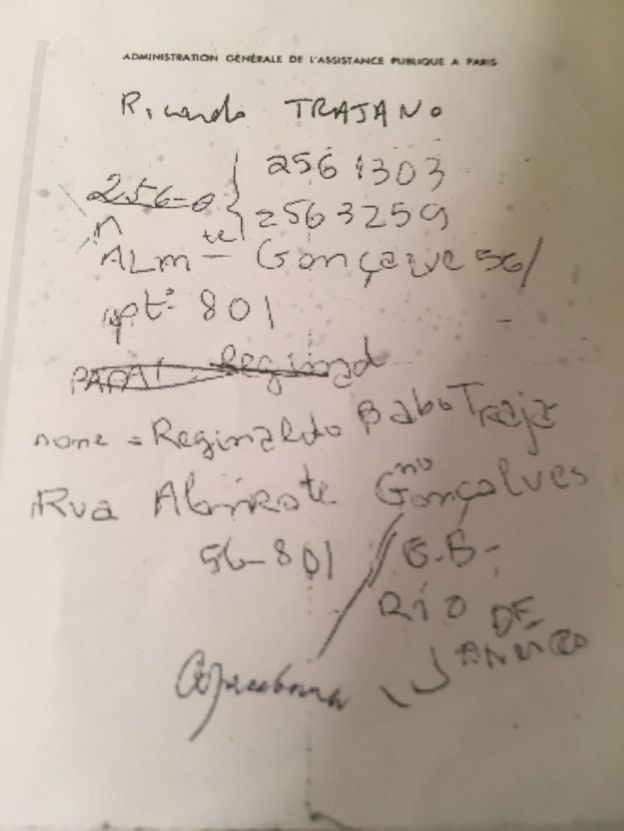 ADMINISTRATION GÉNÉRALE DE L'ASSISTANCE PUBLIQUE A PARIS
Ricardo TRAJANO
256 1303
256-0
256 3259
n
ALm te Gonçalve 56/
apt: 801
PAPAI Reginad
nome = Reginaldo Babo Traja
no
Rua Almirate Gonçalves
56-801 G.B-
RIO DE
JANEIRO
Copacabana